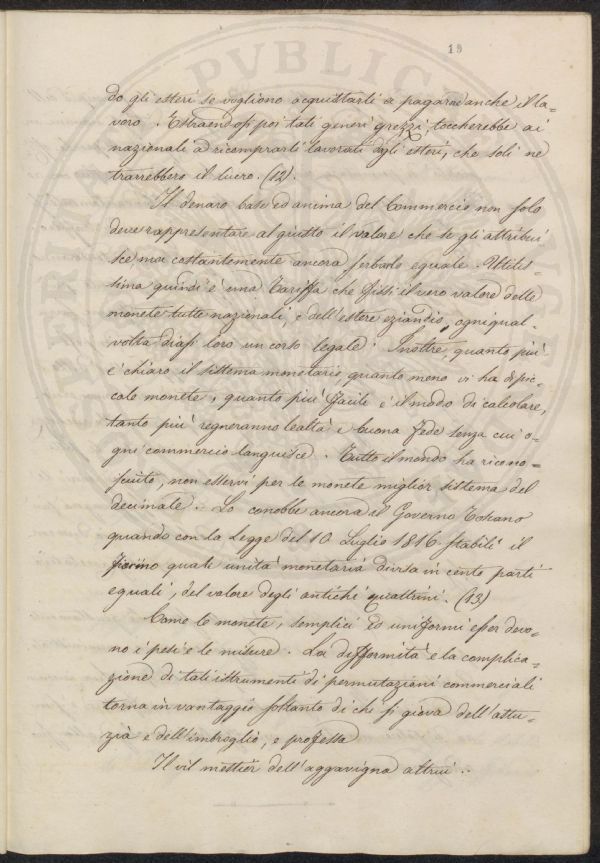 19
do gli esteri se vogliono acquistarli a pagarne anche il la-
voro. Estraendosi poi tali generi grezzi, toccherebbe ai
nazionali a ricomprarli lavorati dagli esteri, che soli ne
trarrebbero il lucro. (12).
Il denaro base ed anima del Commercio non solo
deve rappresentare al giusto il valore che se gli attribui
sce ma costantemente ancora serbarlo eguale. Utilis-
sima quindi è una Tariffa che fissi il vero valore delle
monete tutte nazionali, e dell'estere eziandio, ogniqual-
volta diasi loro un corso legale. Inoltre, quanto più
è chiaro il sistema monetario, quanto meno vi ha di pic-
cole monete, quanto più facile è il modo di calcolare,
tanto più regneranno lealtà e buona fede senza cui o-
gni commercio languisce. Tutto il mondo ha ricono-
sciuto, non esservi per le monete miglior sistema del
decimale. Lo conobbe ancora il Governo Toscano
quando con la Legge del 10 Luglio 1816 stabilì il
fiorino quale unità monetaria divisa in cento parti
eguali, del valore degli antichi quattrini. (13)
Come le monete, semplici ed uniformi esser devo-
no i pesi e le misure. La difformità e la complica-
zione di tali istrumenti di permutazioni commerciali
torna in vantaggio soltanto di chi si giova dell'astu-
zia e dell'imbroglio, e professa
Il vil mestier dell'aggavigna altrui..
PVBLICA